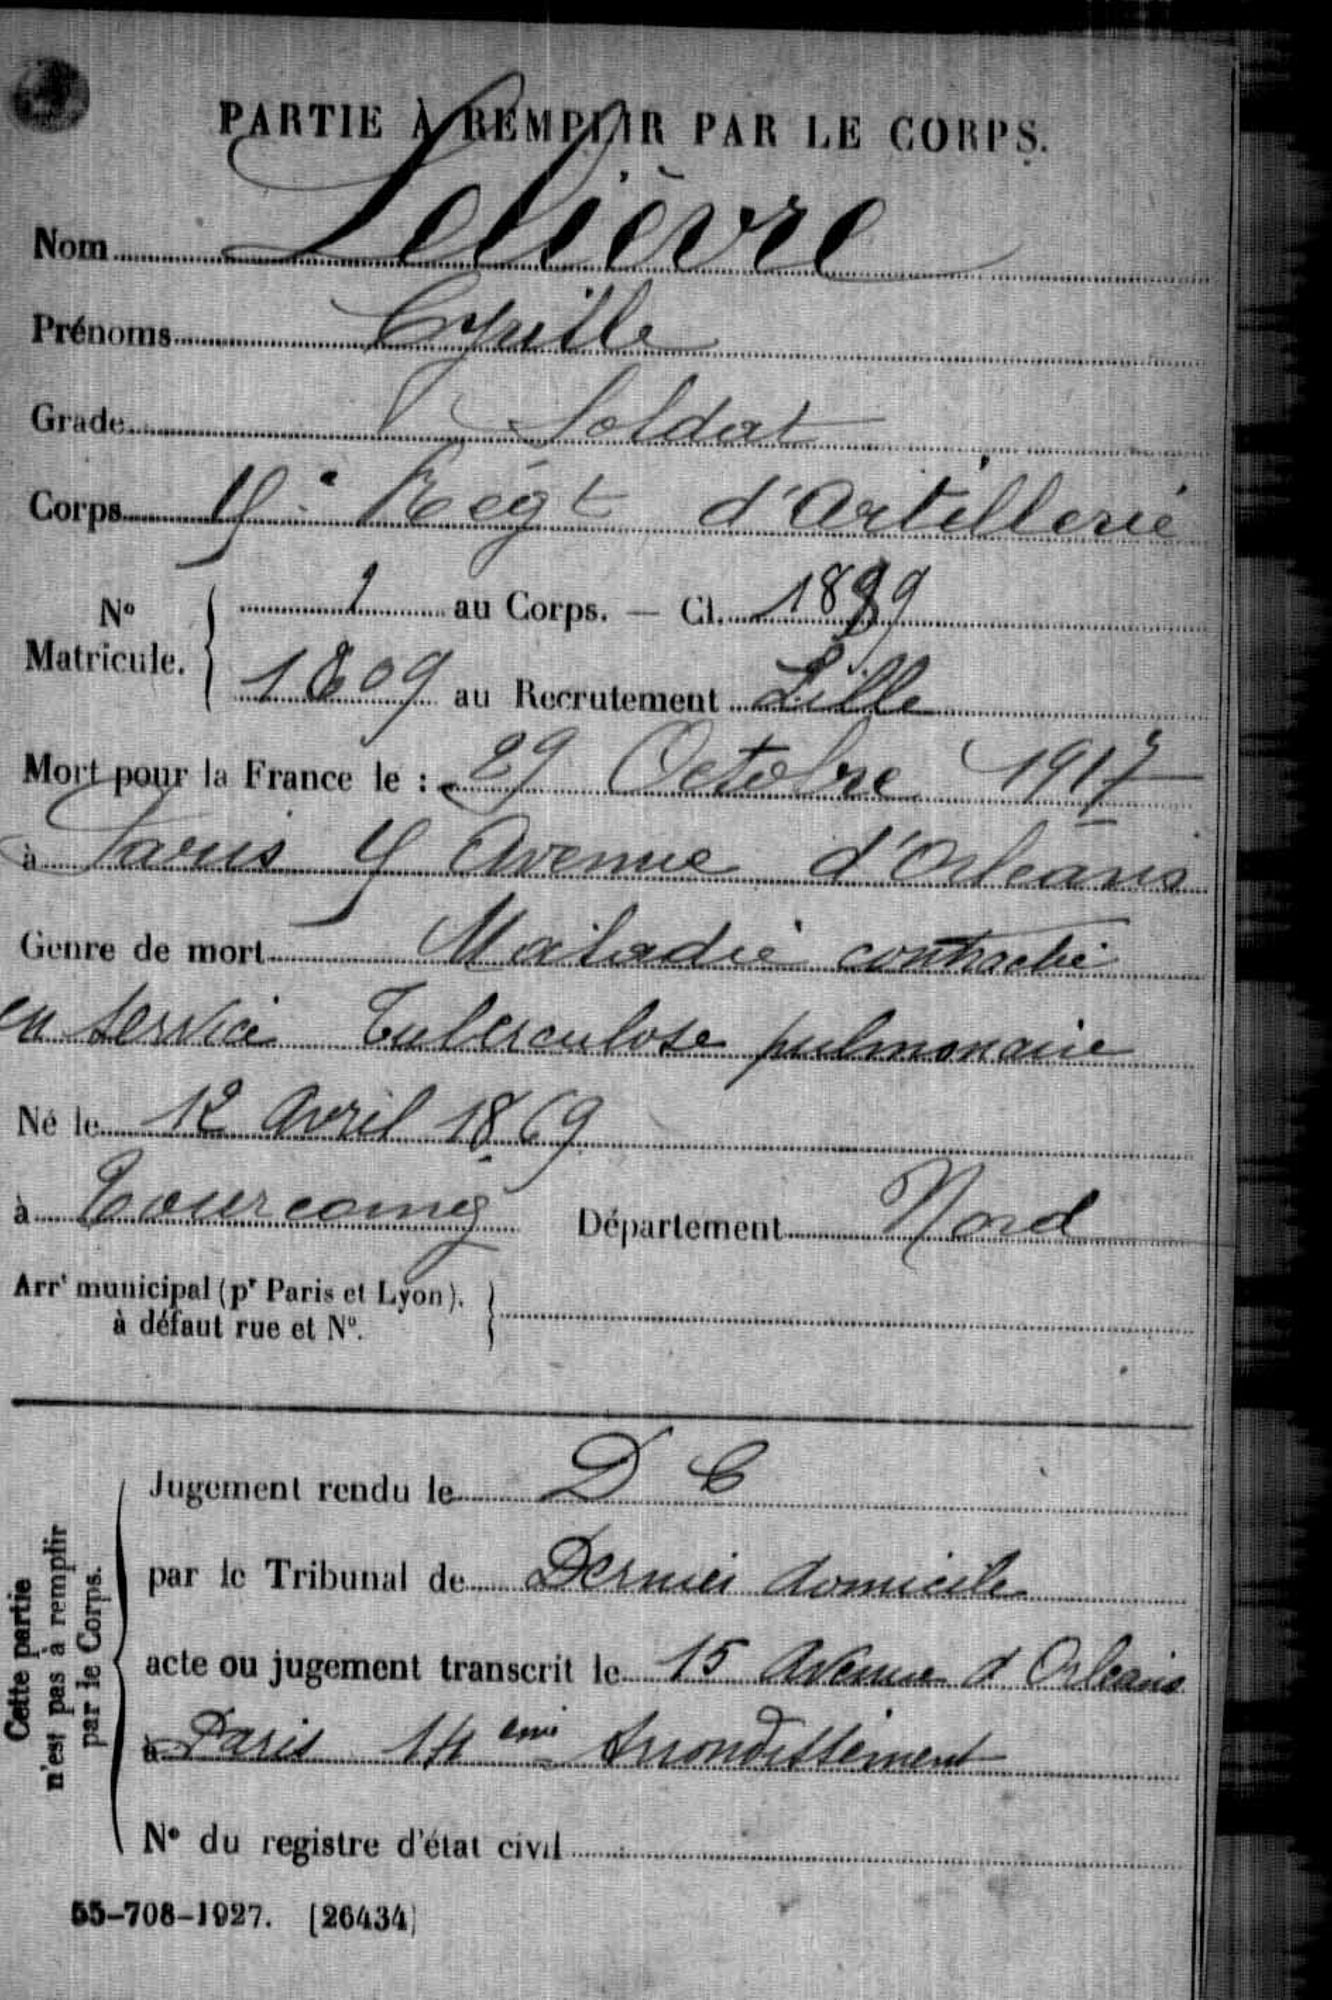 PARTIE À REMPLIR PAR LE CORPS.
Nom Lelièvre
Prénoms Cyrille
Grade Soldat
Corps 4e Régt d'Artillerie
No Matricule. { au Corps. — Cl. 1889
1809 au Recrutement Lille
Mort pour la France le : 29 Octobre 1917
à Paris 4 Avenue d'Orléans
Genre de mort Maladie contractée
en service Tuberculose pulmonaire
Né le 12 Avril 1869
à Tourcoing Département Nord
Arrt municipal (pr Paris et Lyon), }
à défaut rue et No.
Cette partie n'est pas à remplir par le Corps.
Jugement rendu le D C
par le Tribunal de Dernier domicile
acte ou jugement transcrit le 15 Avenue d'Orléans
à Paris 14eme Arrondissement
No du registre d'état civil
55-708-1927. [26434]